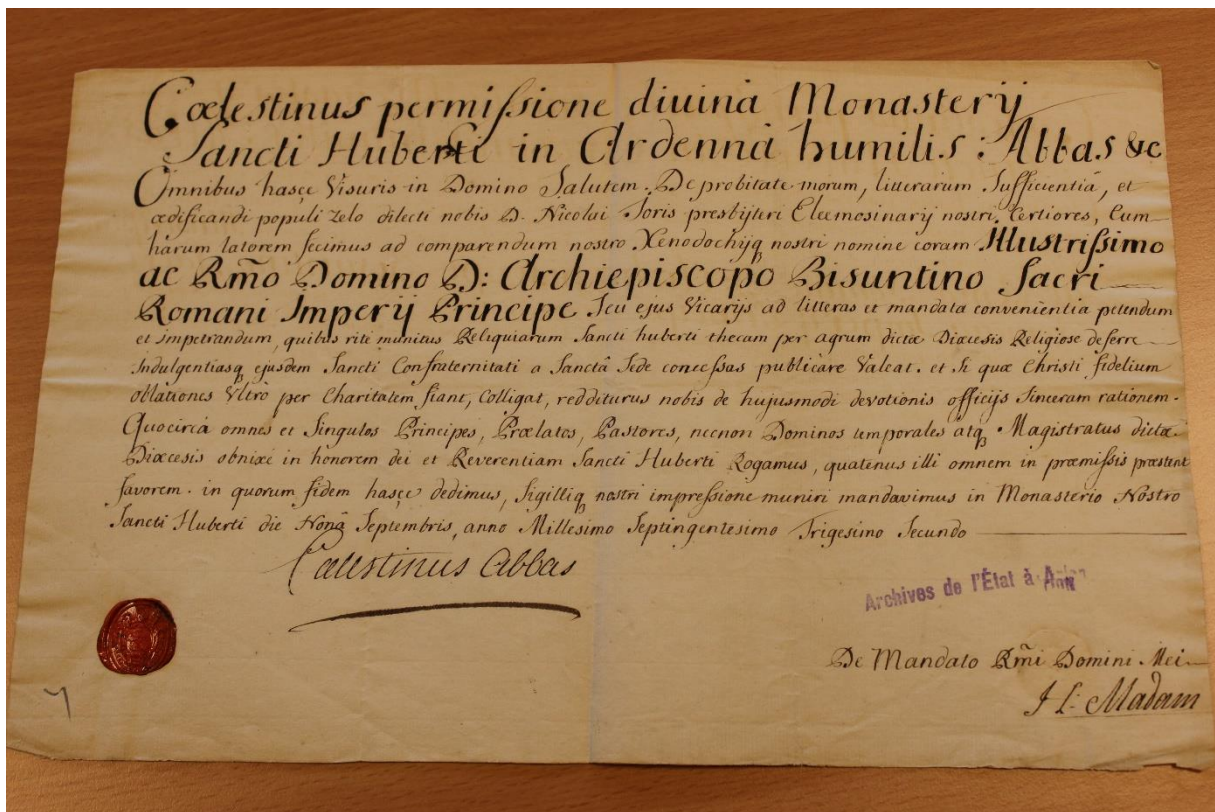 Cœlestinus permissione divinâ Monasterÿ
Sancti Huberti in Ardennâ humilis : Abbas &c
Omnibus hasçe Visuris in Domino Salutem. De probitate morum, litterarum Sufficientiâ, et
ædificandi populi zelo dilecti nobis D. Nicolai Joris presbÿteri Eleemosinarÿ nostri Certiores, Eum
harum latorem fecimus ad comparendum nostro Xenodochÿq nostri nomine coram Illustrissimo
ac Rm̃o Domino D: Archiepiscopo Bisuntino Sacri
Romani Imperÿ Principe Seu ejus Vicarÿs ad litteras et mandata convenientia petendum
et impetrandum, quibus rite munitus Reliquiarum Sancti huberti thecam per agrum dictæ Diæcesis Religiose deferre
Indulgentiasq ejusdem Sancti Confraternitati a Sanctâ Sede concessas publicare Valeat. et Si quæ Christi fidelium
oblationes Vltro per Charitatem fiant, Colligat, redditurus nobis de hujusmodi devotionis officÿs Sinceram rationem.
Quocircà omnes et Singulos Principes, Prælatos, Pastores, necnon Dominos temporales atq Magistratus dictæ
Diæcesis obnixe in honorem dei et Reverentiam Sancti Huberti Rogamus, quatinus illi omnem in præmissis præstent
favorem. in quorum fidem hasçe dedimus, Sigilliq nostri impressione muniri mandavimus in Monasterio Nostro
Sancti Huberti die Nonâ Septembris, anno Millesimo Septingentesimo Trigesimo Secundo
Cœlestinus Abbas
Archives de l'État à Arlon
De Mandato Rm̃i Domini Mei
J L: Madam